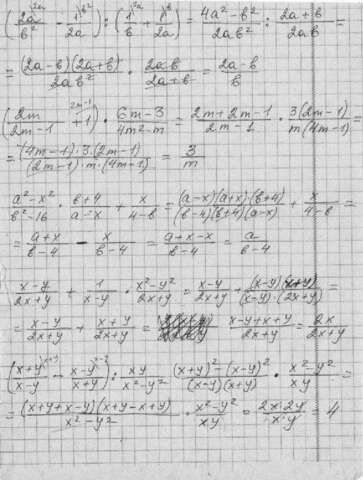 (2a/b² - 1/2a) : (1/b + 1/2a) = (4a² - b²)/2ab² : (2a + b)/2ab =
= (2a-b)(2a+b)/2ab² · 2ab/(2a+b) = (2a-b)/b
(2m/(2m-1) + 1) · (6m-3)/(4m²-m) = (2m+2m-1)/(2m-1) · 3(2m-1)/m(4m-1) =
= (4m-1)·3·(2m-1)/(2m-1)·m·(4m-1) = 3/m
(a²-x²)/(b²-16) · (b+4)/(a-x) + x/(4-b) = (a-x)(a+x)·(b+4)/(b-4)(b+4)(a-x) + x/(4-b) =
= (a+x)/(b-4) - x/(b-4) = (a+x-x)/(b-4) = a/(b-4)
(x-y)/(2x+y) + 1/(x-y) · (x²-y²)/(2x+y) = (x-y)/(2x+y) + (x-y)(x+y)/(x-y)·(2x+y) =
= (x-y)/(2x+y) + (x+y)/(2x+y) = (x-y+x+y)/(2x+y) = 2x/(2x+y)
((x+y)/(x-y) - (x-y)/(x+y)) : xy/(x²-y²) = ((x+y)²-(x-y)²)/(x-y)(x+y) · (x²-y²)/xy =
= (x+y+x-y)(x+y-x+y)/(x²-y²) · (x²-y²)/xy = 2x·2y/x·y = 4